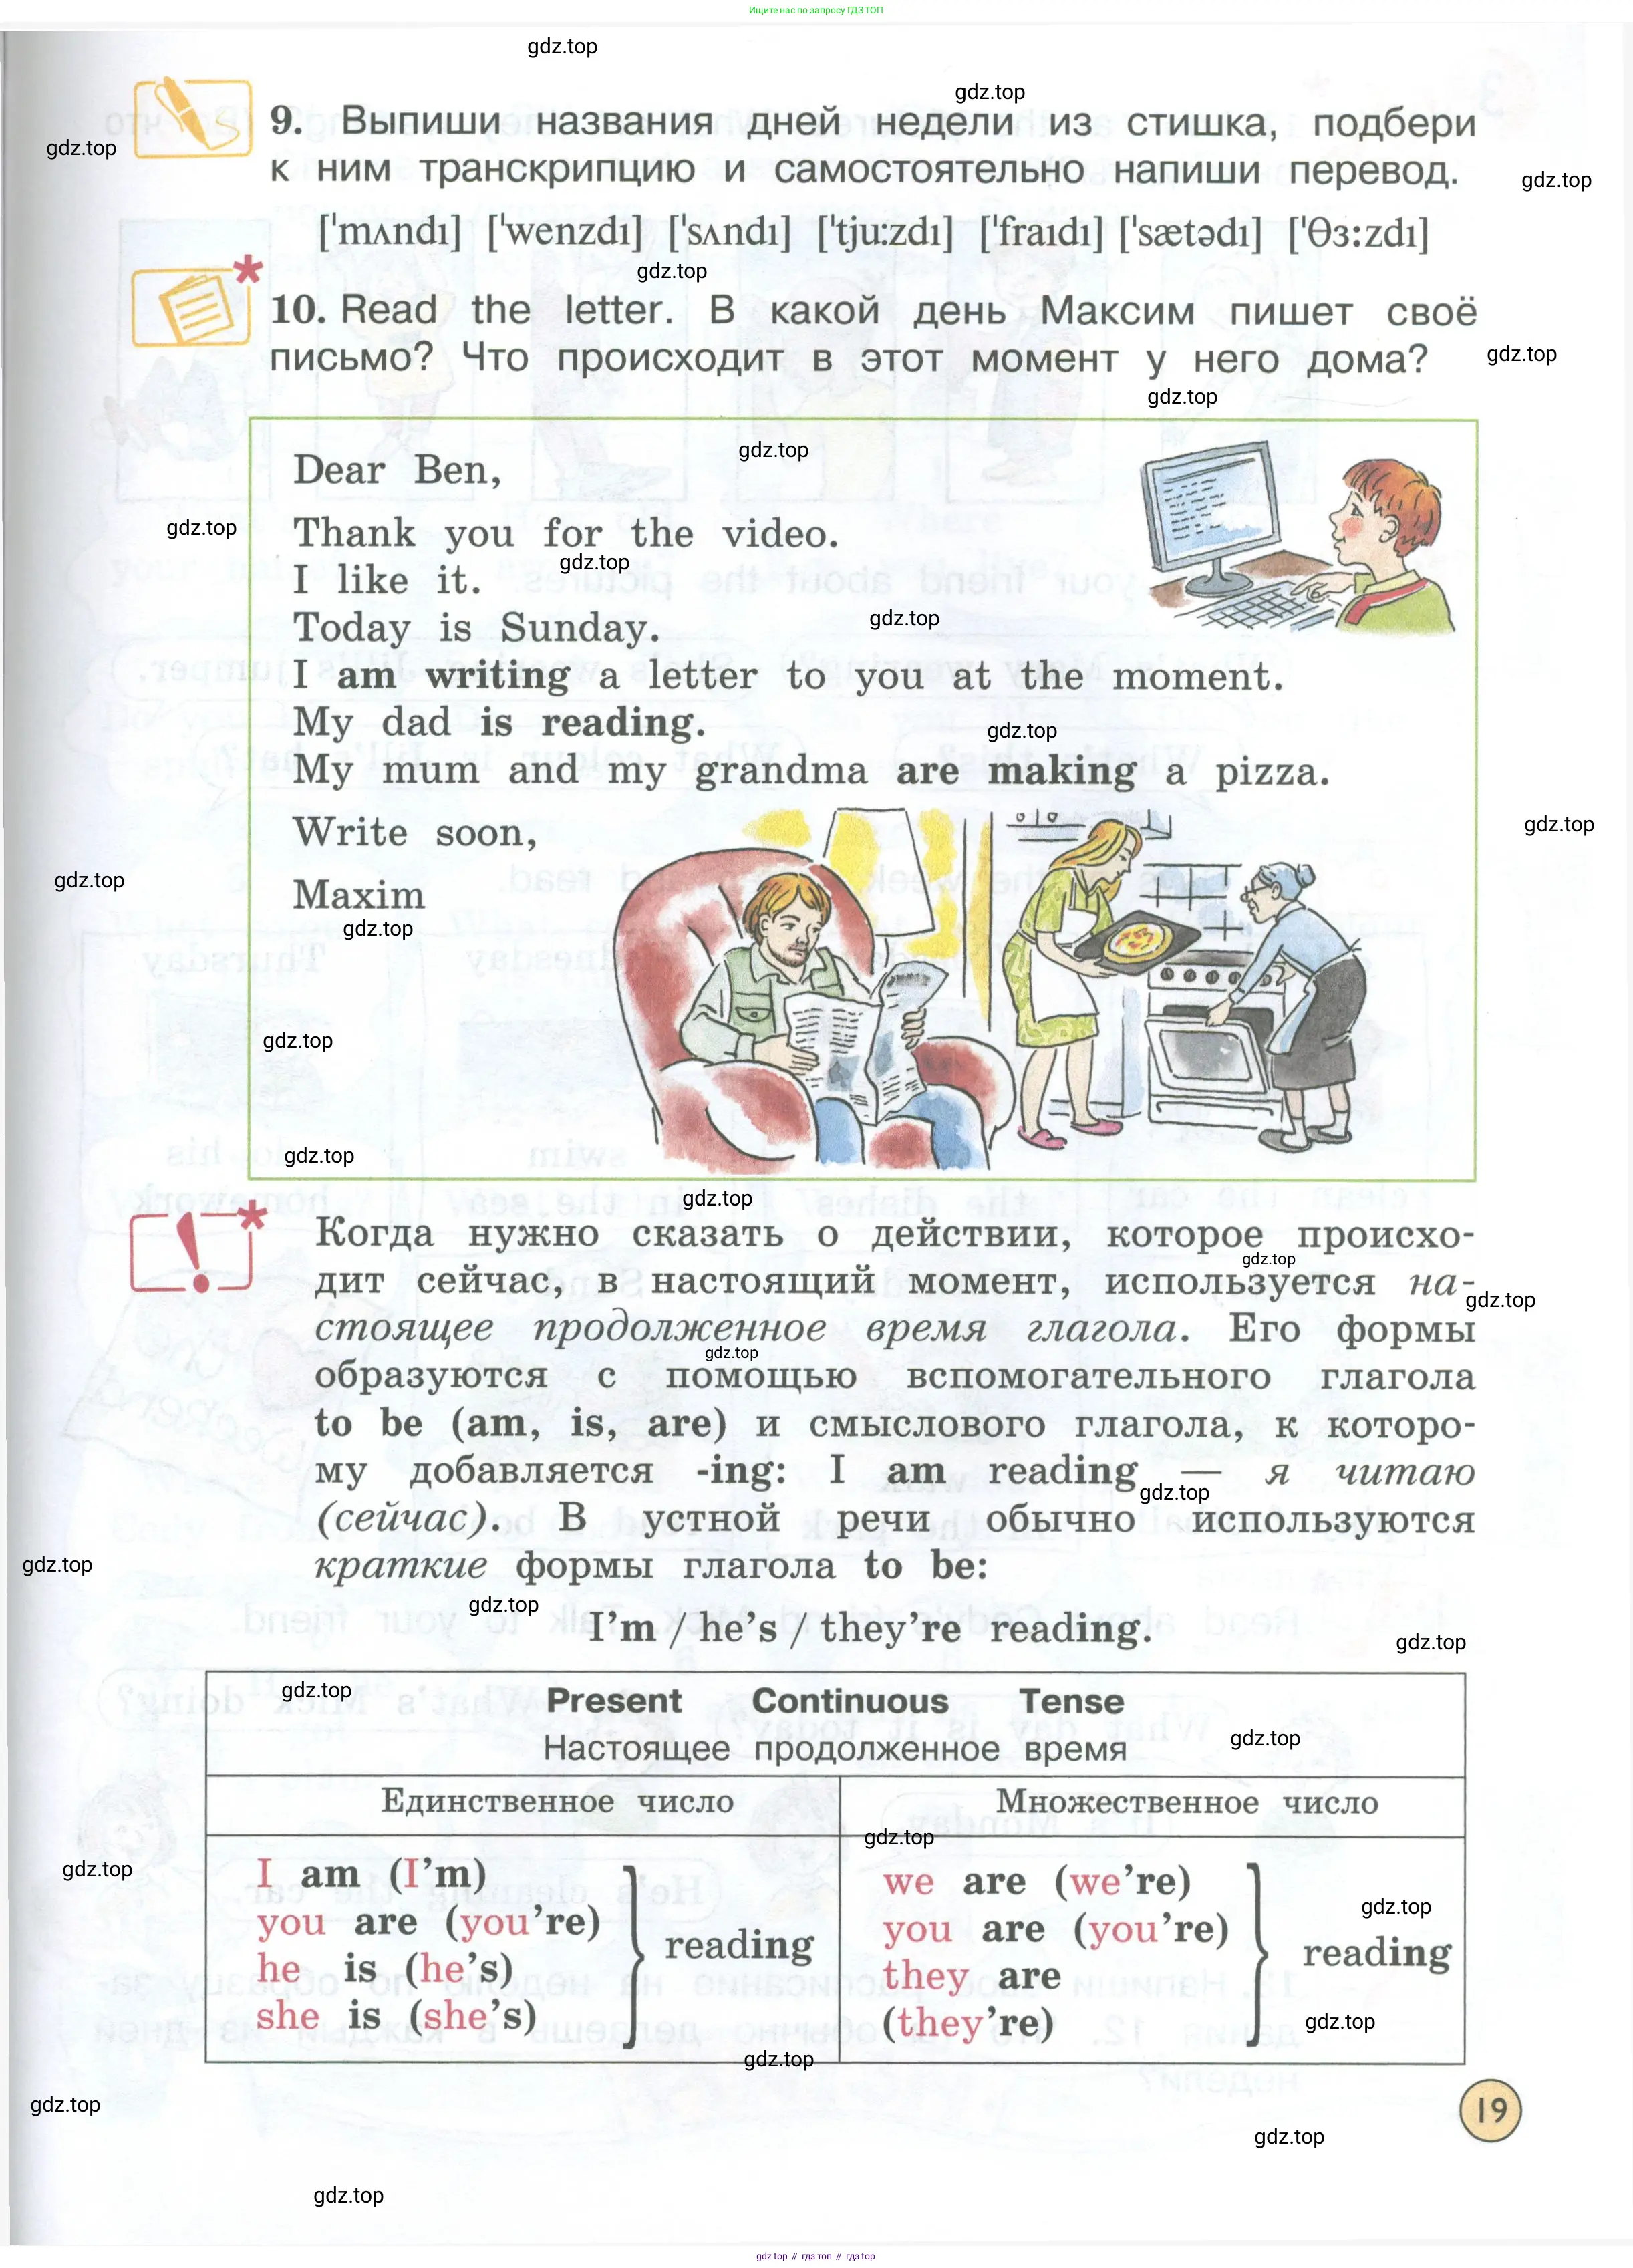 Ищите нас по запросу ГДЗ ТОП
gdz.top
gdz.top
9. Выпиши названия дней недели из стишка, подбери
gdz.top
к ним транскрипцию и самостоятельно напиши перевод.
gdz.top
['mʌndɪ] ['wenzdɪ] ['sʌndɪ] ['tju:zdɪ] ['fraɪdɪ] ['sætədɪ] ['Θɜ:zdɪ]
gdz.top
*
10. Read the letter. В какой день Максим пишет своё
письмо? Что происходит в этот момент у него дома?
gdz.top
gdz.top
gdz.top
Dear Ben,
gdz.top
Thank you for the video.
gdz.top
I like it.
gdz.top
Today is Sunday.
I am writing a letter to you at the moment.
My dad is reading.
gdz.top
My mum and my grandma are making a pizza.
gdz.top
Write soon,
gdz.top
Maxim
gdz.top
gdz.top
gdz.top
gdz.top
!*
Когда нужно сказать о действии, которое происхо-
gdz.top
дит сейчас, в настоящий момент, используется на-
gdz.top
стоящее продолженное время глагола. Его формы
gdz.top
образуются с помощью вспомогательного глагола
to be (am, is, are) и смыслового глагола, к которо-
му добавляется -ing: I am reading — я читаю
gdz.top
(сейчас). В устной речи обычно используются
gdz.top
краткие формы глагола to be:
gdz.top
I'm / he's / they're reading.
gdz.top
gdz.top
Present Continuous Tense
gdz.top
Настоящее продолженное время
Единственное число
Множественное число
gdz.top
gdz.top
I am (I'm)
you are (you're)
he is (he's)
she is (she's)
reading
we are (we're)
gdz.top
you are (you're)
they are
(they're)
reading
gdz.top
gdz.top
gdz.top
19
gdz.top
gdz.top
gdz.top // гдз топ // гдз top